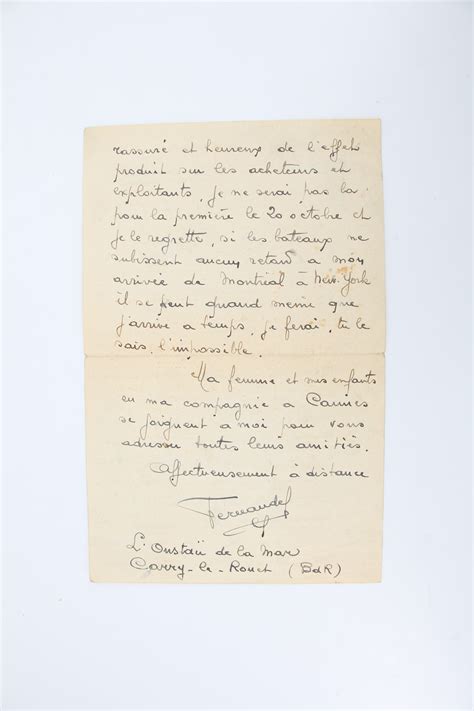 rassuré et heureux de l'effet
produit sur les acheteurs et
exploitants, je ne serai pas la
pour la première le 20 octobre et
je le regrette, si les bateaux ne
subissent aucun retard a mon
arrivée de Montréal à New-York
il se peut quand meme que
j'arrive a temps, je ferai, tu le
sais, l'impossible.
Ma femme et mes enfants
en ma compagnie a Cannes
se joignent a moi pour vous
adresser toutes leurs amitiés.
Affectueusement à distance
Fernandel
L'Oustaü de la Mar
Carry-le-Rouet (BdR)